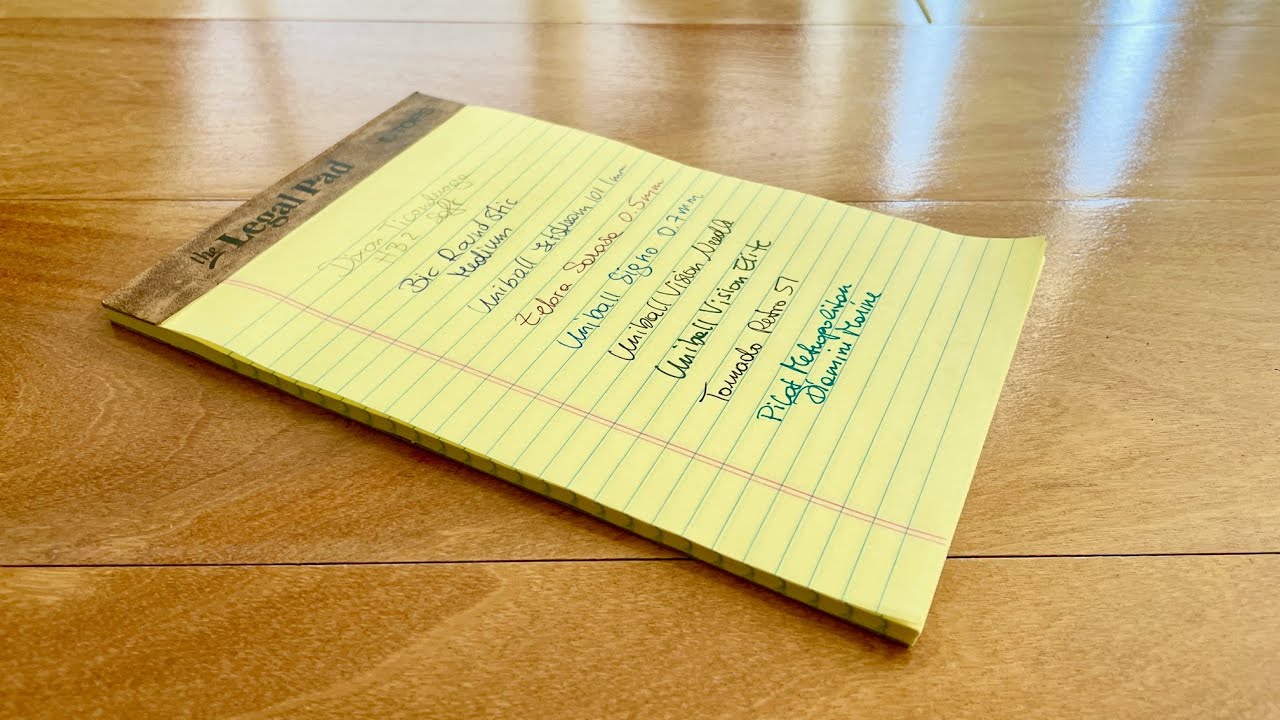 the Legal Pad
Dixon Ticonderoga
HB2 Soft
Bic Roundstic
Medium
Uniball Jetstream 101 1mm
Zebra Sarasa 0.5mm
Uniball Signo 0.7mm
Uniball Vision Needle
Uniball Vision Elite
Tornado Retro 51
Pilot Metropolitan
Diamine Marine